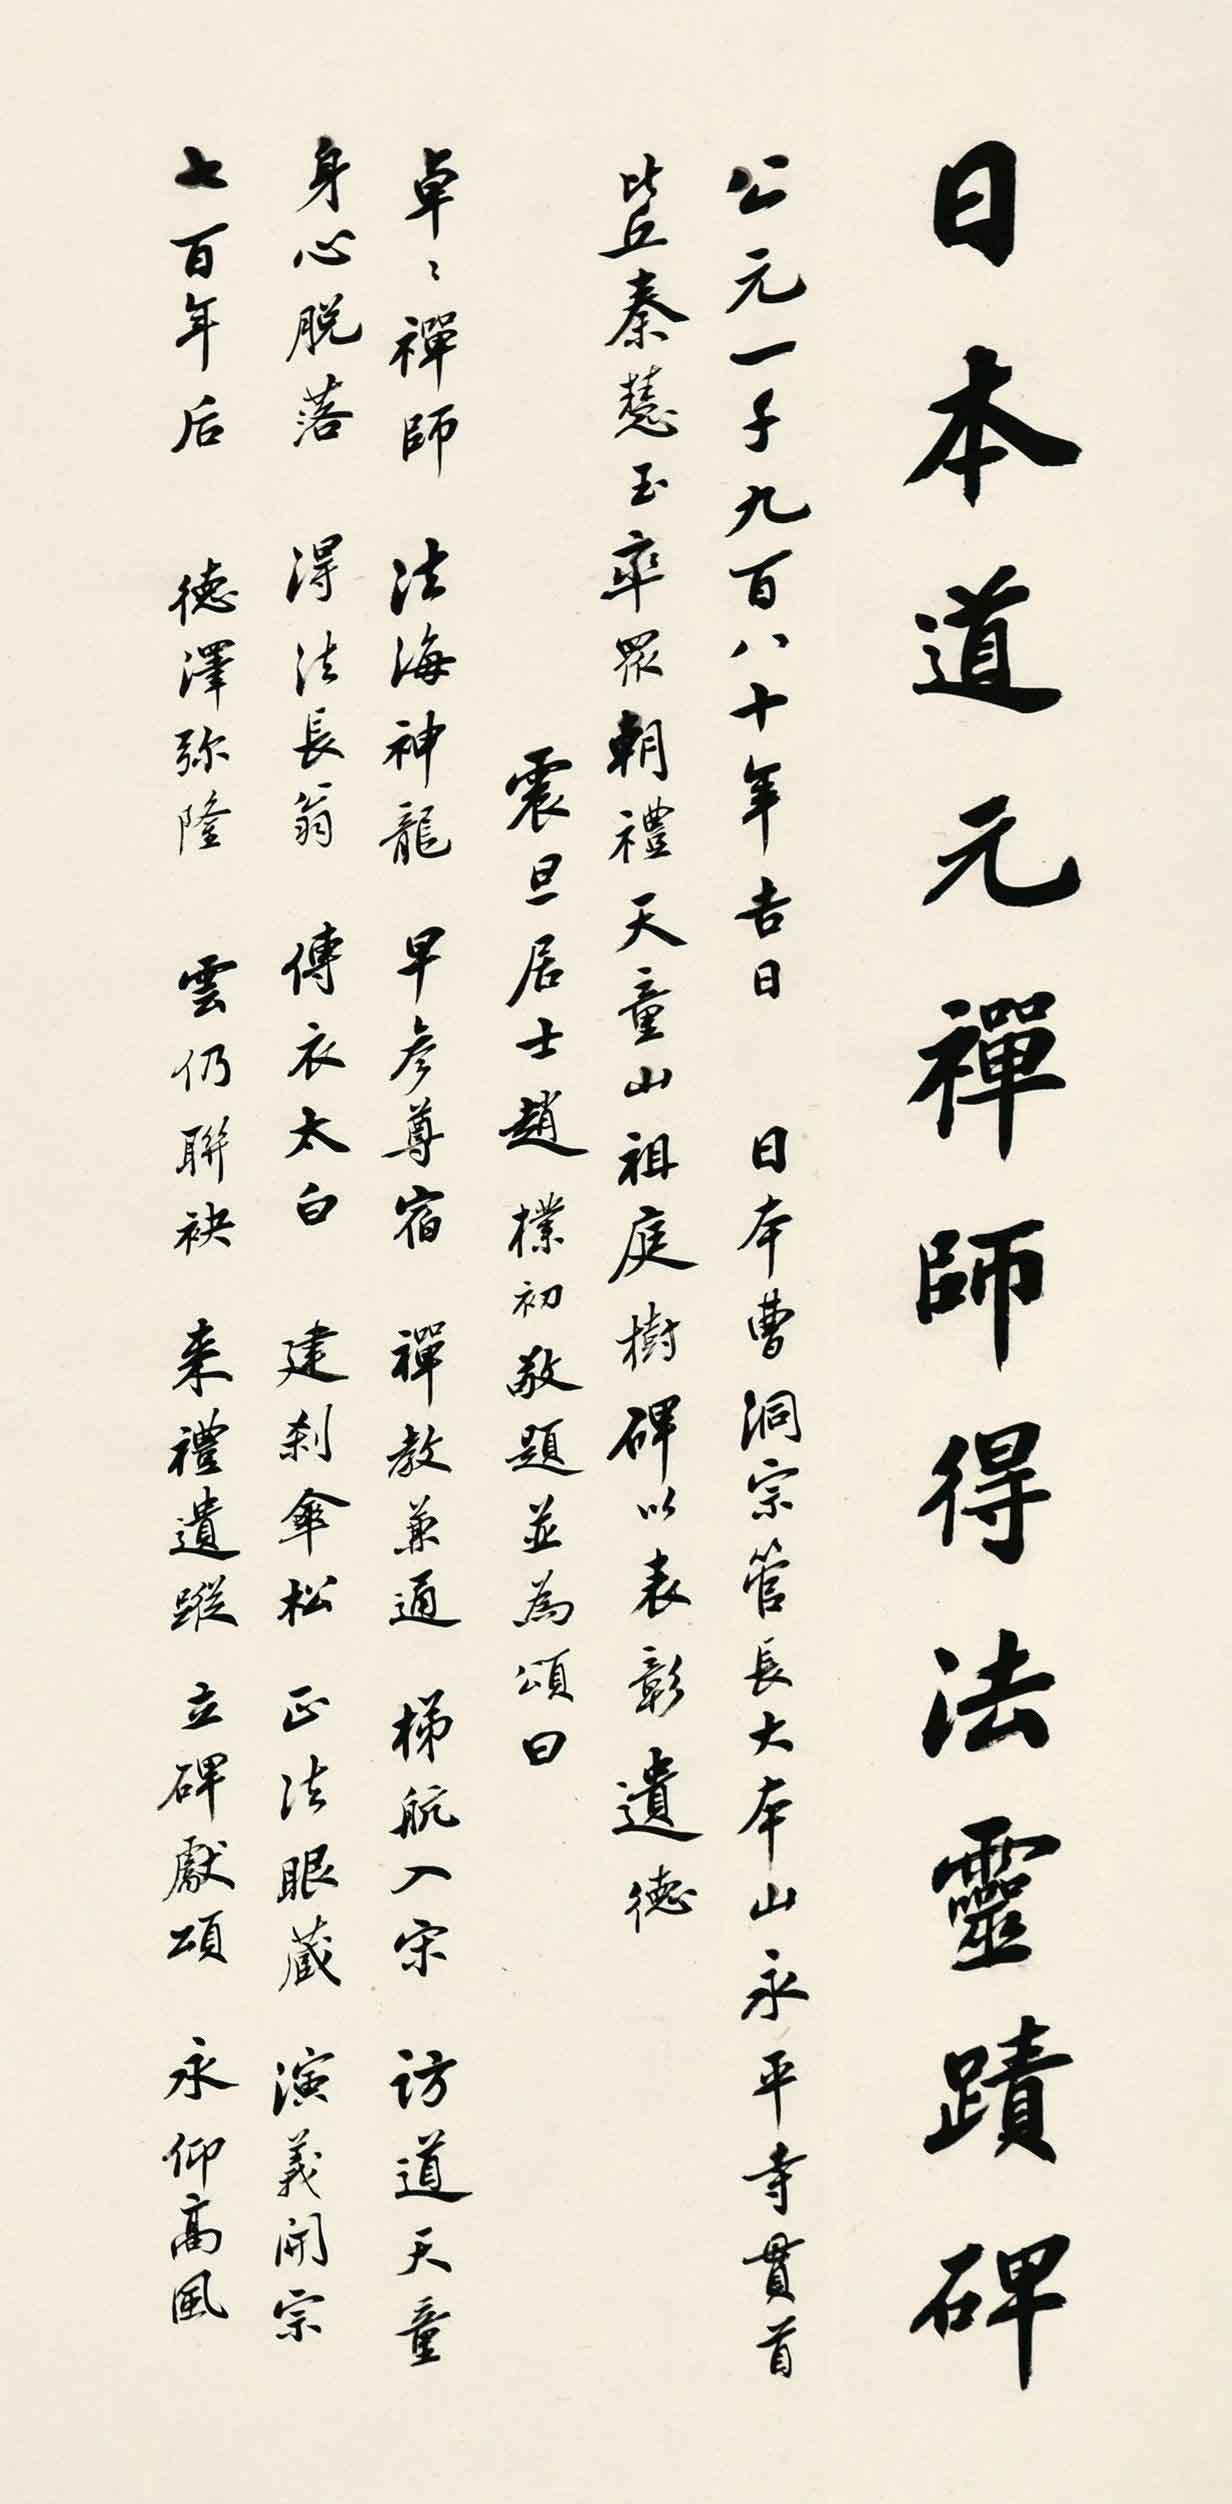 日本道元禪師得法靈蹟碑
公元一千九百八十年吉日 日本曹洞宗管長大本山永平寺貫首
比丘秦慧玉率眾朝禮天童山祖庭樹碑以表彰遺德
震旦居士趙樸初敬題並為頌曰
卓〻禪師 法海神龍 早參尊宿 禪教兼通 梯航入宋 訪道天童
身心脱落 得法長翁 傳衣太白 建剎傘松 正法眼藏 演義開宗
七百年后 德澤弥隆 雲仍聯袂 来禮遺蹤 立碑獻頌 永仰高風